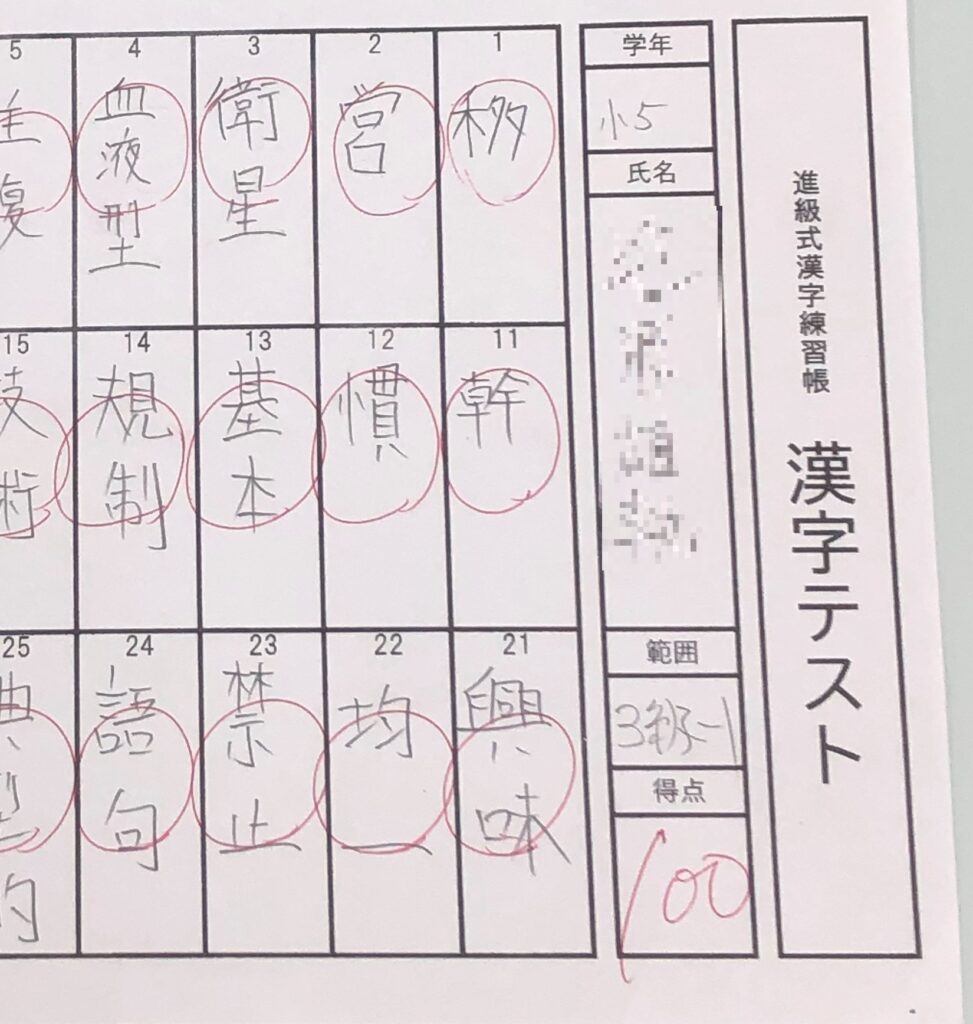 進級式漢字練習帳 漢字テスト
学年
小5
氏名
範囲
3級-1
得点
100
1
移
2
営
3
衛星
4
血液型
5
11
幹
12
慣
13
基本
14
規制
15
技術
21
興味
22
均一
23
禁止
24
語句
25
典型的